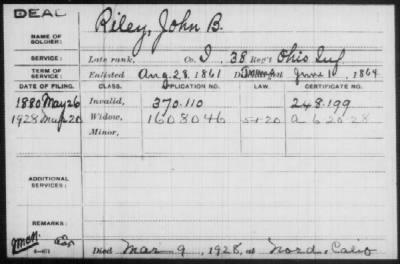 DEAD
Riley, John B.
NAME OF SOLDIER:
SERVICE: Late rank, Co. I, 38 Reg't Ohio Inf
TERM OF SERVICE: Enlisted Aug. 28, 1861 June 1, 1864
DATE OF FILING. CLASS. APPLICATION NO. LAW. CERTIFICATE NO.
1880 May 26 Invalid, 370.110 248.199
1928 20 Widow, 1608046 5-1-20 a 6 20 28
Minor,
ADDITIONAL SERVICES:
REMARKS:
Died Mar 9, 1928, at Nord, Calif